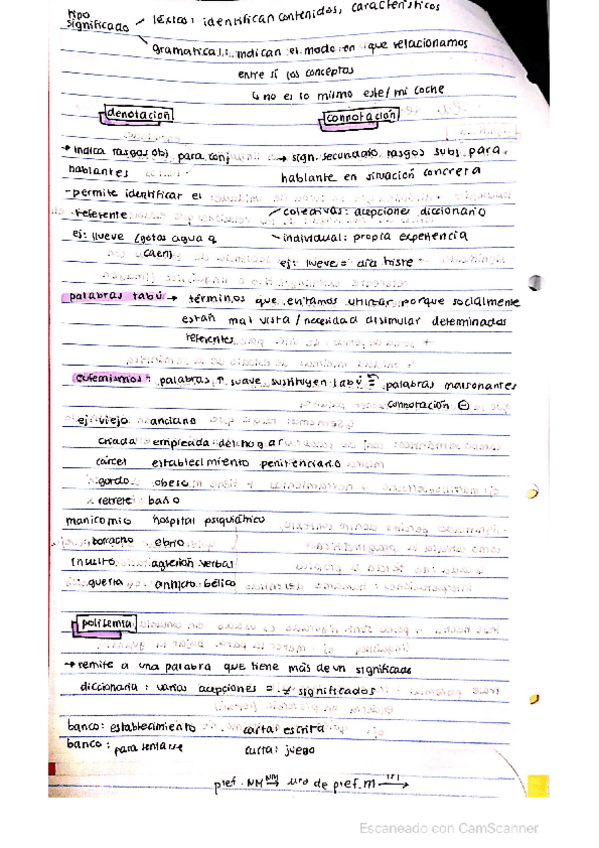 tipo
significado
léxicos: identifican contenidos, característicos
gramatical: indican el modo en que relacionamos
entre sí los conceptos
↳ no es lo mismo este/mi coche
denotación
connotación
→ indica rasgos obj. para conj.
hablantes
→ sign. secundario, rasgos subj. para
hablante en situación concreta
- permite identificar el
referente
- colectivas: acepciones diccionario
- individual: propia experiencia
ej: llueve (gotas agua q
caen)
ej: llueve = día triste
palabras tabú → términos que evitamos utilizar porque socialmente
están mal vista / necesidad disimular determinados
referentes
eufemismos: palabras ↑ suave sustituyen tabú = palabras malsonantes
connotación ⊖
ej: viejo anciano
criada empleada del hogar
cárcel establecimiento penitenciario
gordo obeso
retrete baño
manicomio hospital psiquiátrico
borracho ebrio
insulto agresión verbal
guerra bélico
polisemia
→ remite a una palabra que tiene más de un significado
diccionaria: varias acepciones = ≠ significados
banco: establecimiento
carta: escrita
banco: para sentarse
carta: juego
pref. NM → uso de pref. m →
Escaneado con CamScanner